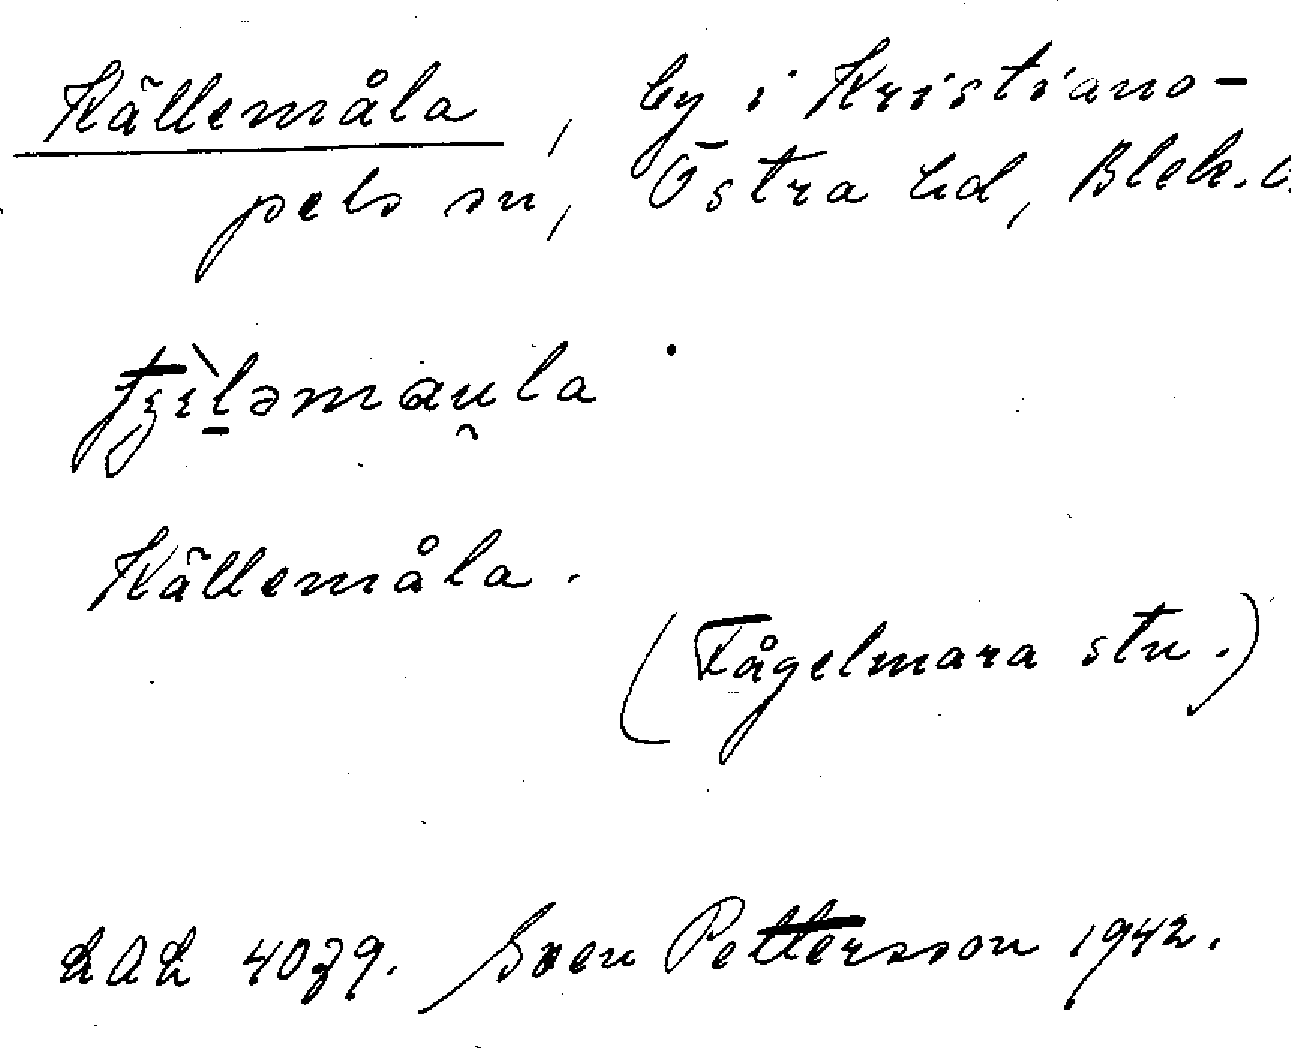 Källemåla, by i Kristiano-
pels sn, Östra hd, Blek. l.
Källemåla.
(Fågelmara stn.)
LAL 4079. Sven Pettersson 1942.